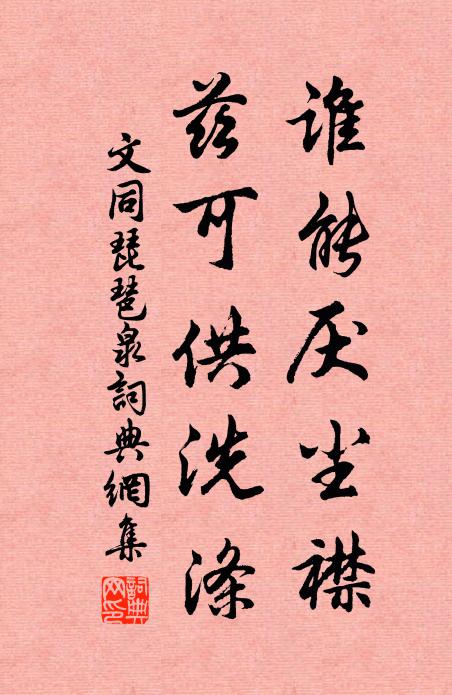 谁能厌尘襟
兹可供洗涤
文同琵琶泉詞典網集
詞典網印